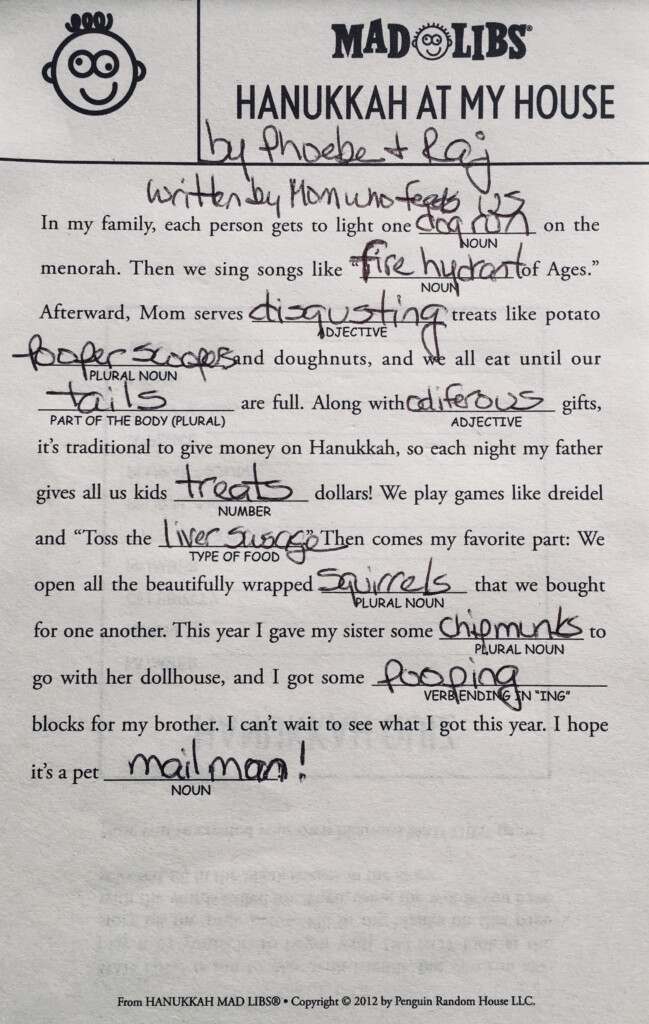 MAD LIBS®
HANUKKAH AT MY HOUSE
by Phoebe + Raj
Written by Mom who feeds us
In my family, each person gets to light one dog run on the
NOUN
menorah. Then we sing songs like "fire hydrant of Ages."
NOUN
Afterward, Mom serves disgusting treats like potato
ADJECTIVE
pooper scoops and doughnuts, and we all eat until our
PLURAL NOUN
tails are full. Along with odiferous gifts,
PART OF THE BODY (PLURAL) ADJECTIVE
it's traditional to give money on Hanukkah, so each night my father
gives all us kids treats dollars! We play games like dreidel
NUMBER
and "Toss the liver susage." Then comes my favorite part: We
TYPE OF FOOD
open all the beautifully wrapped squirrels that we bought
PLURAL NOUN
for one another. This year I gave my sister some chipmunks to
PLURAL NOUN
go with her dollhouse, and I got some pooping
VERB ENDING IN "ING"
blocks for my brother. I can't wait to see what I got this year. I hope
it's a pet mailman!
NOUN
From HANUKKAH MAD LIBS® • Copyright © 2012 by Penguin Random House LLC.